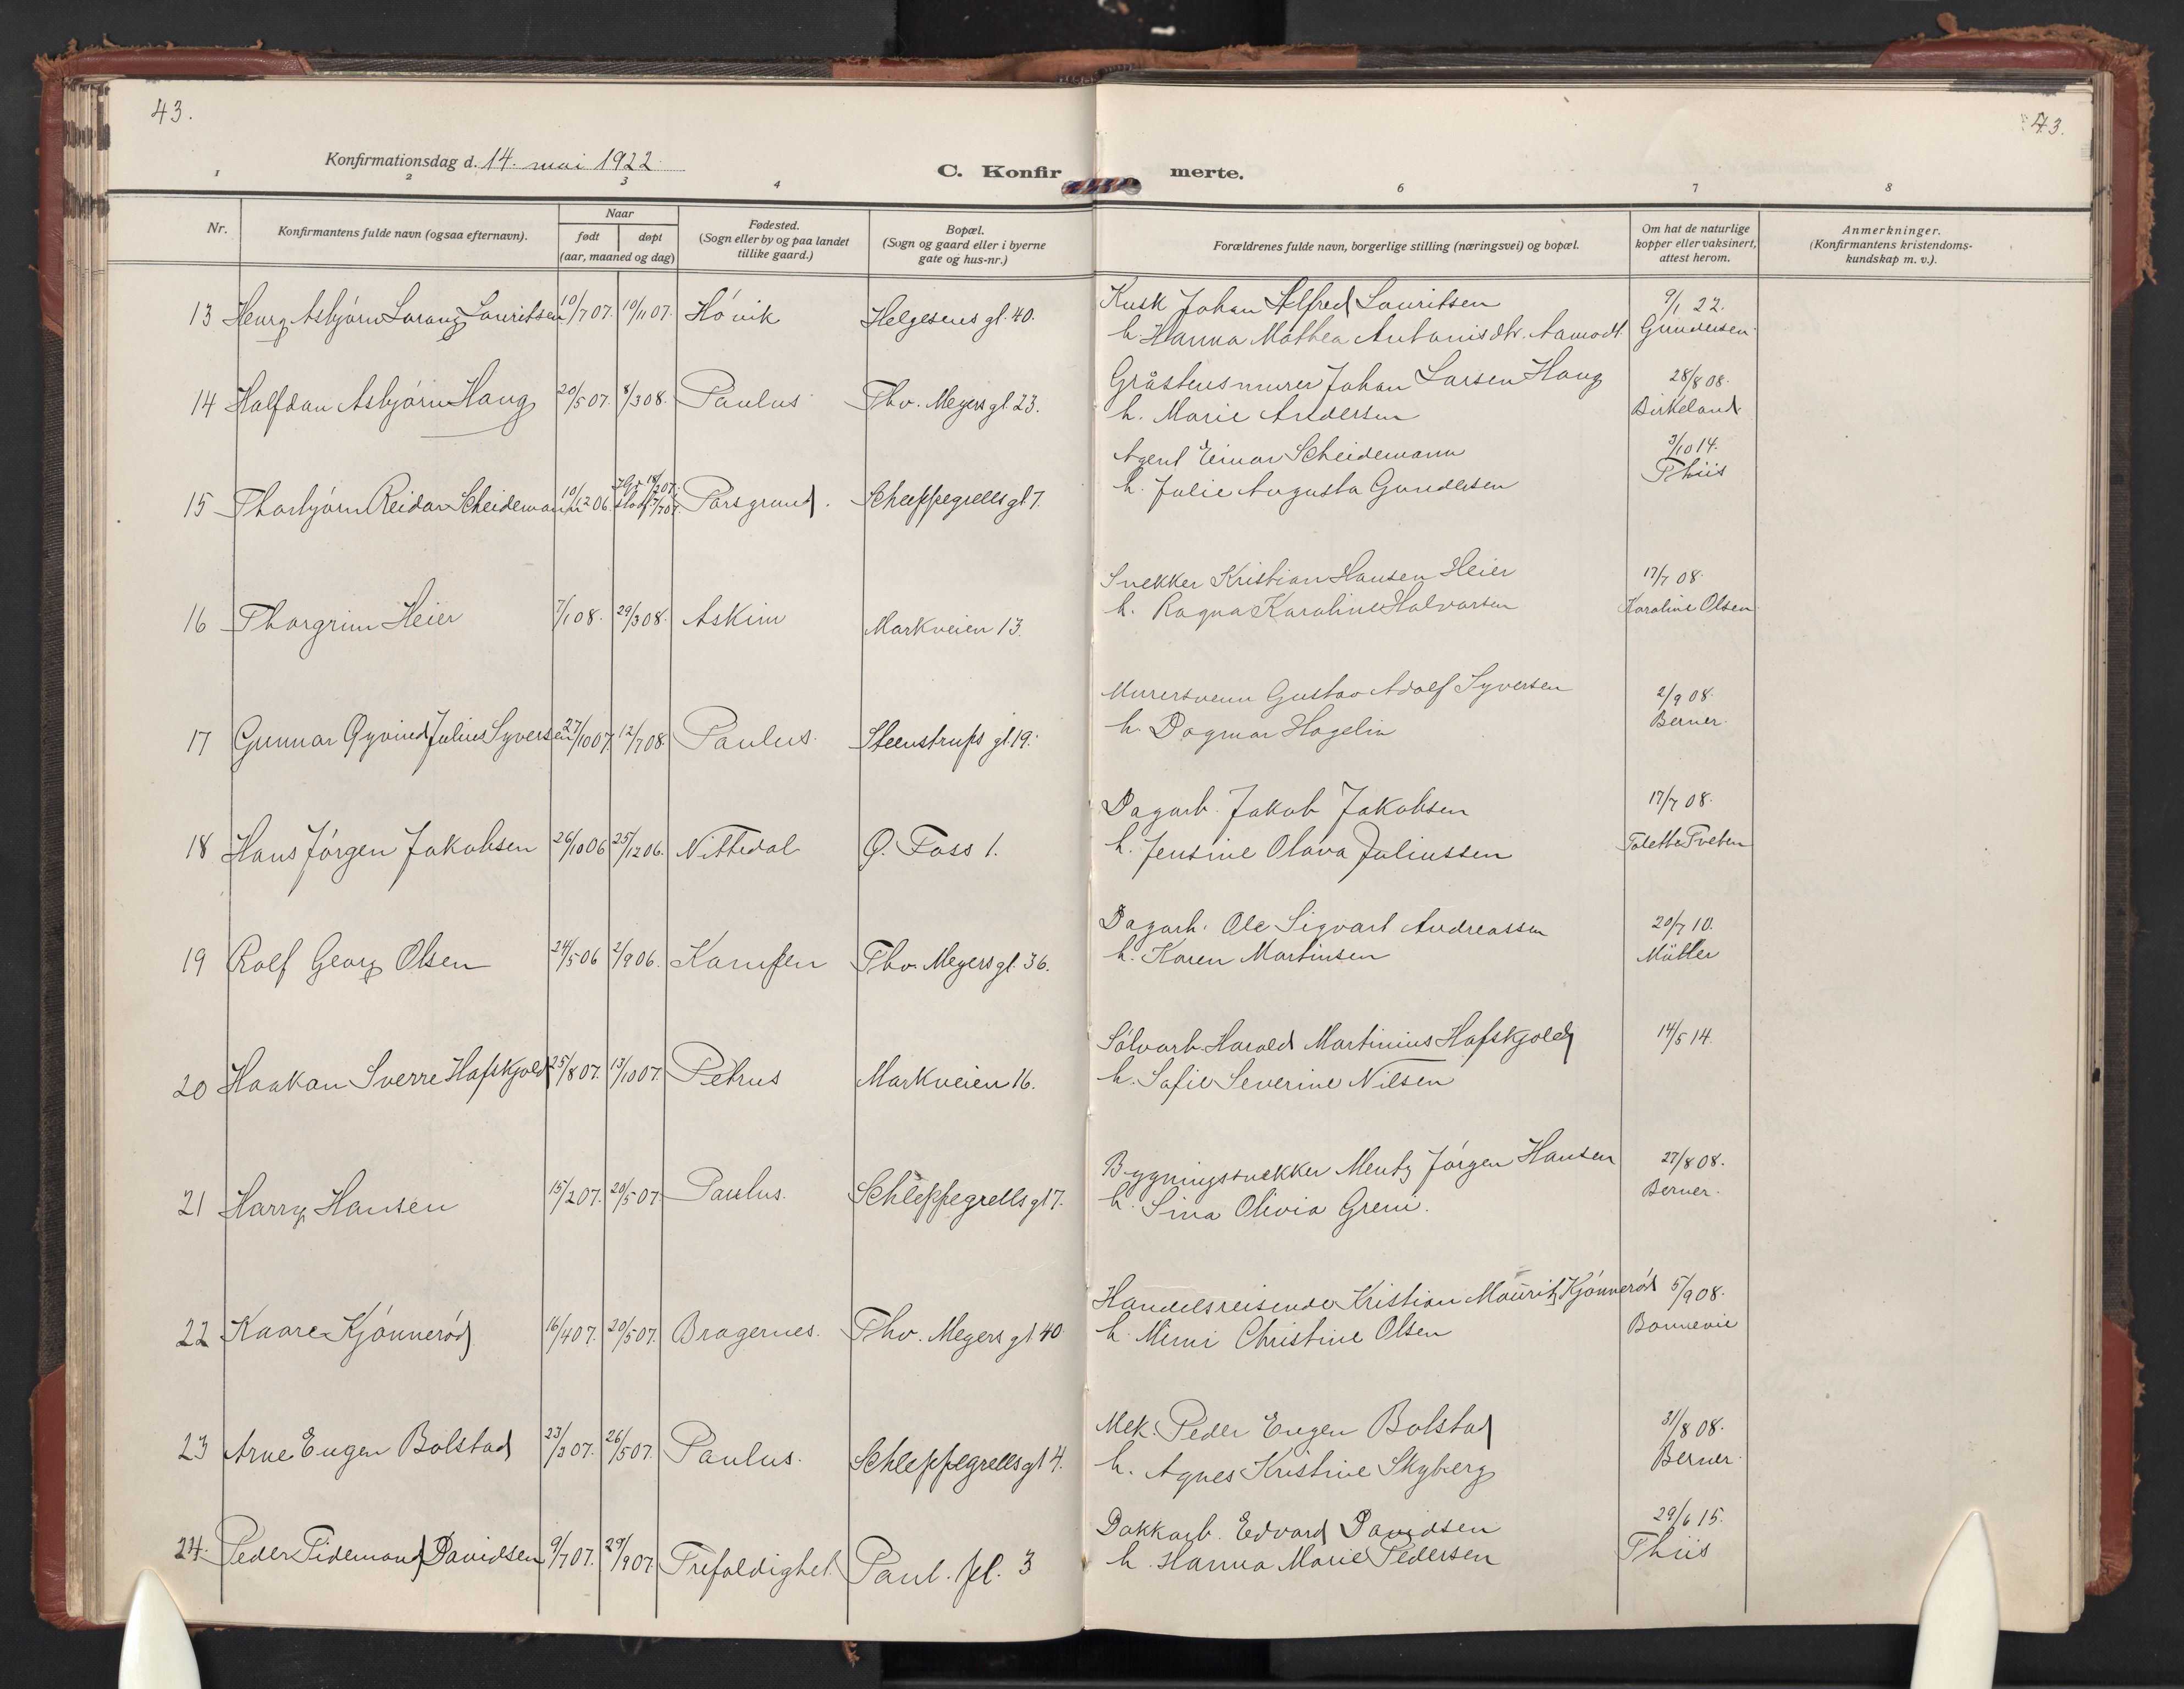 43.
43.
Konfirmationsdag d. 14. mai 1922.
C. Konfir merte.
1 2 3 4 6 7 8
Nr.
Konfirmantens fulde navn (ogsaa efternavn).
Naar
født
døpt
(aar, maaned og dag)
Fødested.
(Sogn eller by og paa landet
tillike gaard.)
Bopæl.
(Sogn og gaard eller i byerne
gate og hus-nr.)
Forældrenes fulde navn, borgerlige stilling (næringsvei) og bopæl.
Om hat de naturlige
kopper eller vaksinert,
attest herom.
Anmerkninger.
(Konfirmantens kristendoms-
kundskap m. v.).
13 Henry Asbjørn Lorang Lauritsen 10/7 07. 10/11 07. Hövik Helgesens gt. 40.
Kusk Johan Alfred Lauritsen 9/1 22.
h. Hanna Mathea Antonisdtr. Aamodt. Gundersen
14 Halfdan Asbjørn Haug 20/5 07. 8/3 08. Paulus Thv. Meyers gt. 23.
Gråstensmurer Johan Larsen Haug 28/8 08.
h. Marie Andersen Birkeland
15 Thorbjørn Reidar Scheidemann 10/12 06. 18/2 07. 7/7 07. Porsgrund. Schleppegrells gt 7.
Agent Einar Scheidemann 3/10 14.
h. Julie Augusta Gundersen Thiis
16 Thorgrim Heier 7/1 08. 29/3 08. Askim Markveien 13.
Snekker Kristian Hansen Heier 17/7 08.
h. Ragna Karoline Halvorsen Karoline Olsen
17 Gunnar Øyvind Julius Syversen 27/10 07. 12/7 08. Paulus. Steenstrups gt. 19.
Murersvenn Gustav Adolf Syversen 2/9 08.
h. Dagmar Hagelin Berner.
18 Hans Jörgen Jakobsen 26/10 06 25/12 06. Nittedal Ø. Foss 1.
Dagarb. Jakob Jakobsen 17/7 08.
h. Jensine Olava Juliussen Tolette Tveten
19 Rolf Georg Olsen 24/5 06 2/9 06. Kampen Thv. Meyers gt. 36.
Dagarb. Ole Sigvart Andreassen 20/7 10.
h. Karen Martinsen Müller
20 Haakon Sverre Hafskjold 25/8 07. 13/10 07. Petrus Markveien 16.
Sölvarb. Harald Martinius Hafskjold 14/5 14.
h. Sofie Severine Nilsen
21 Harry Hansen 15/2 07. 20/5 07. Paulus. Schleppegrells gt 7.
Bygningssnekker Mentz Jörgen Hansen 27/8 08.
h. Sina Olivia Greni. Berner.
22 Kaare Kjönneröd 16/4 07. 20/5 07. Bragernes. Thv. Meyers gt 40.
Handelsreisende Kristian Mauritz Kjönneröd 5/9 08.
h. Mimi Christine Olsen Bonnevie
23 Arne Eugen Bolstad 23/3 07. 26/5 07. Paulus. Schleppegrells gt 4.
Mek. Peder Eugen Bolstad 31/8 08.
h. Agnes Kristine Skyberg Berner.
24. Peder Tidemand Davidsen 9/7 07. 29/9 07. Trefoldighet. Paul. pl. 3
Dokkarb. Edvard Davidsen 29/6 15.
h. Hanna Marie Pedersen Thiis